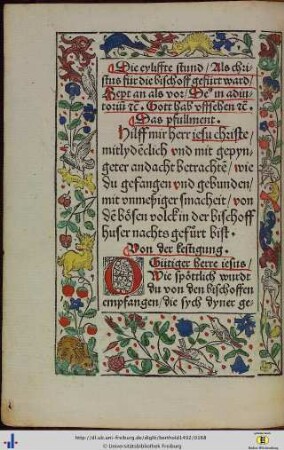 Die eylffte stund / Als chri-
stus für die bischoff gefürt ward /
Hept an als vor / De9 in adiu-
toriū ꝛc. Gott hab vffsehen ꝛc.
Das pfulment.
Hilff mir herr iesu christe /
mitlydēclich vnd mit gepyn-
gerer andacht betrachtē / wie
du gefangen vnd gebunden /
mit vnmesiger smacheit / von
dē bösen volck in der bischoff
huser nachts gefürt bist.
Von der lestigung.
O Gütiger herre iesus /
Wie spöttlich wurdt
du von den bischoffen
empfangen / die sych dyner ge-
http://dl.ub.uni-freiburg.de/diglit/berthold1492/0168
© Universitätsbibliothek Freiburg